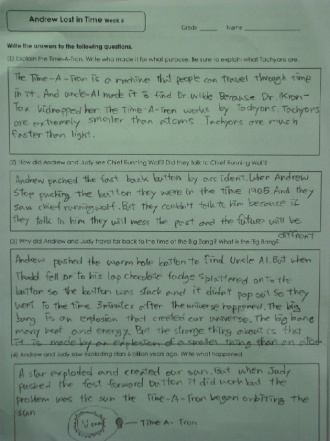 Andrew Lost in Time Week 6
Grade Name
Write the answers to the following questions.
(1) Explain the Time-A-Tron. Write who made it for what purpose. Be sure to explain what Tachyons are.
The Time-A-Tron is a machine that people can travel through time
in it. And uncle Al made it to find Dr. Wilde Because Dr. Kron-
Tox kidnapped her. The Time-A-Tron works by Tachyons. Tachyons
are extremely smaller than atoms Tachyons are much
faster than light.
(2) How did Andrew and Judy see Chief Running Wolf? Did they talk to Chief Running Wolf?
Andrew pushed the fast back button by accident. When Andrew
Stop pushing the button they were in the time 1905 And they
saw chief running wolf. But they couldn't talk to him because if
they talk to him they will mess the past and the future will be
different
(3) Why did Andrew and Judy travel far back to the time of the Big Bang? What is the Big Bang?
Andrew pushed the worm hole button to find Uncle Al. But when
Thudd fell on to his lap chocolate fudge splattered on to the
button so the button was stuck and it didn't pop out So they
went to the time 3 minutes after the universe happened. The big
bang is an explosion that created our universe. The big bang
many heat and energy. But the strange thing about is that
it is made by an explosion of a smaller thing than an atom
(4) Andrew and Judy saw exploding stars 6 billion years ago. Write what happened.
A star exploded and created our sun. But when Judy
pushed the fast forward button it did work but the
problem was the sun the Time-A-Tron began orbiting the
sun
Time-A-Tron